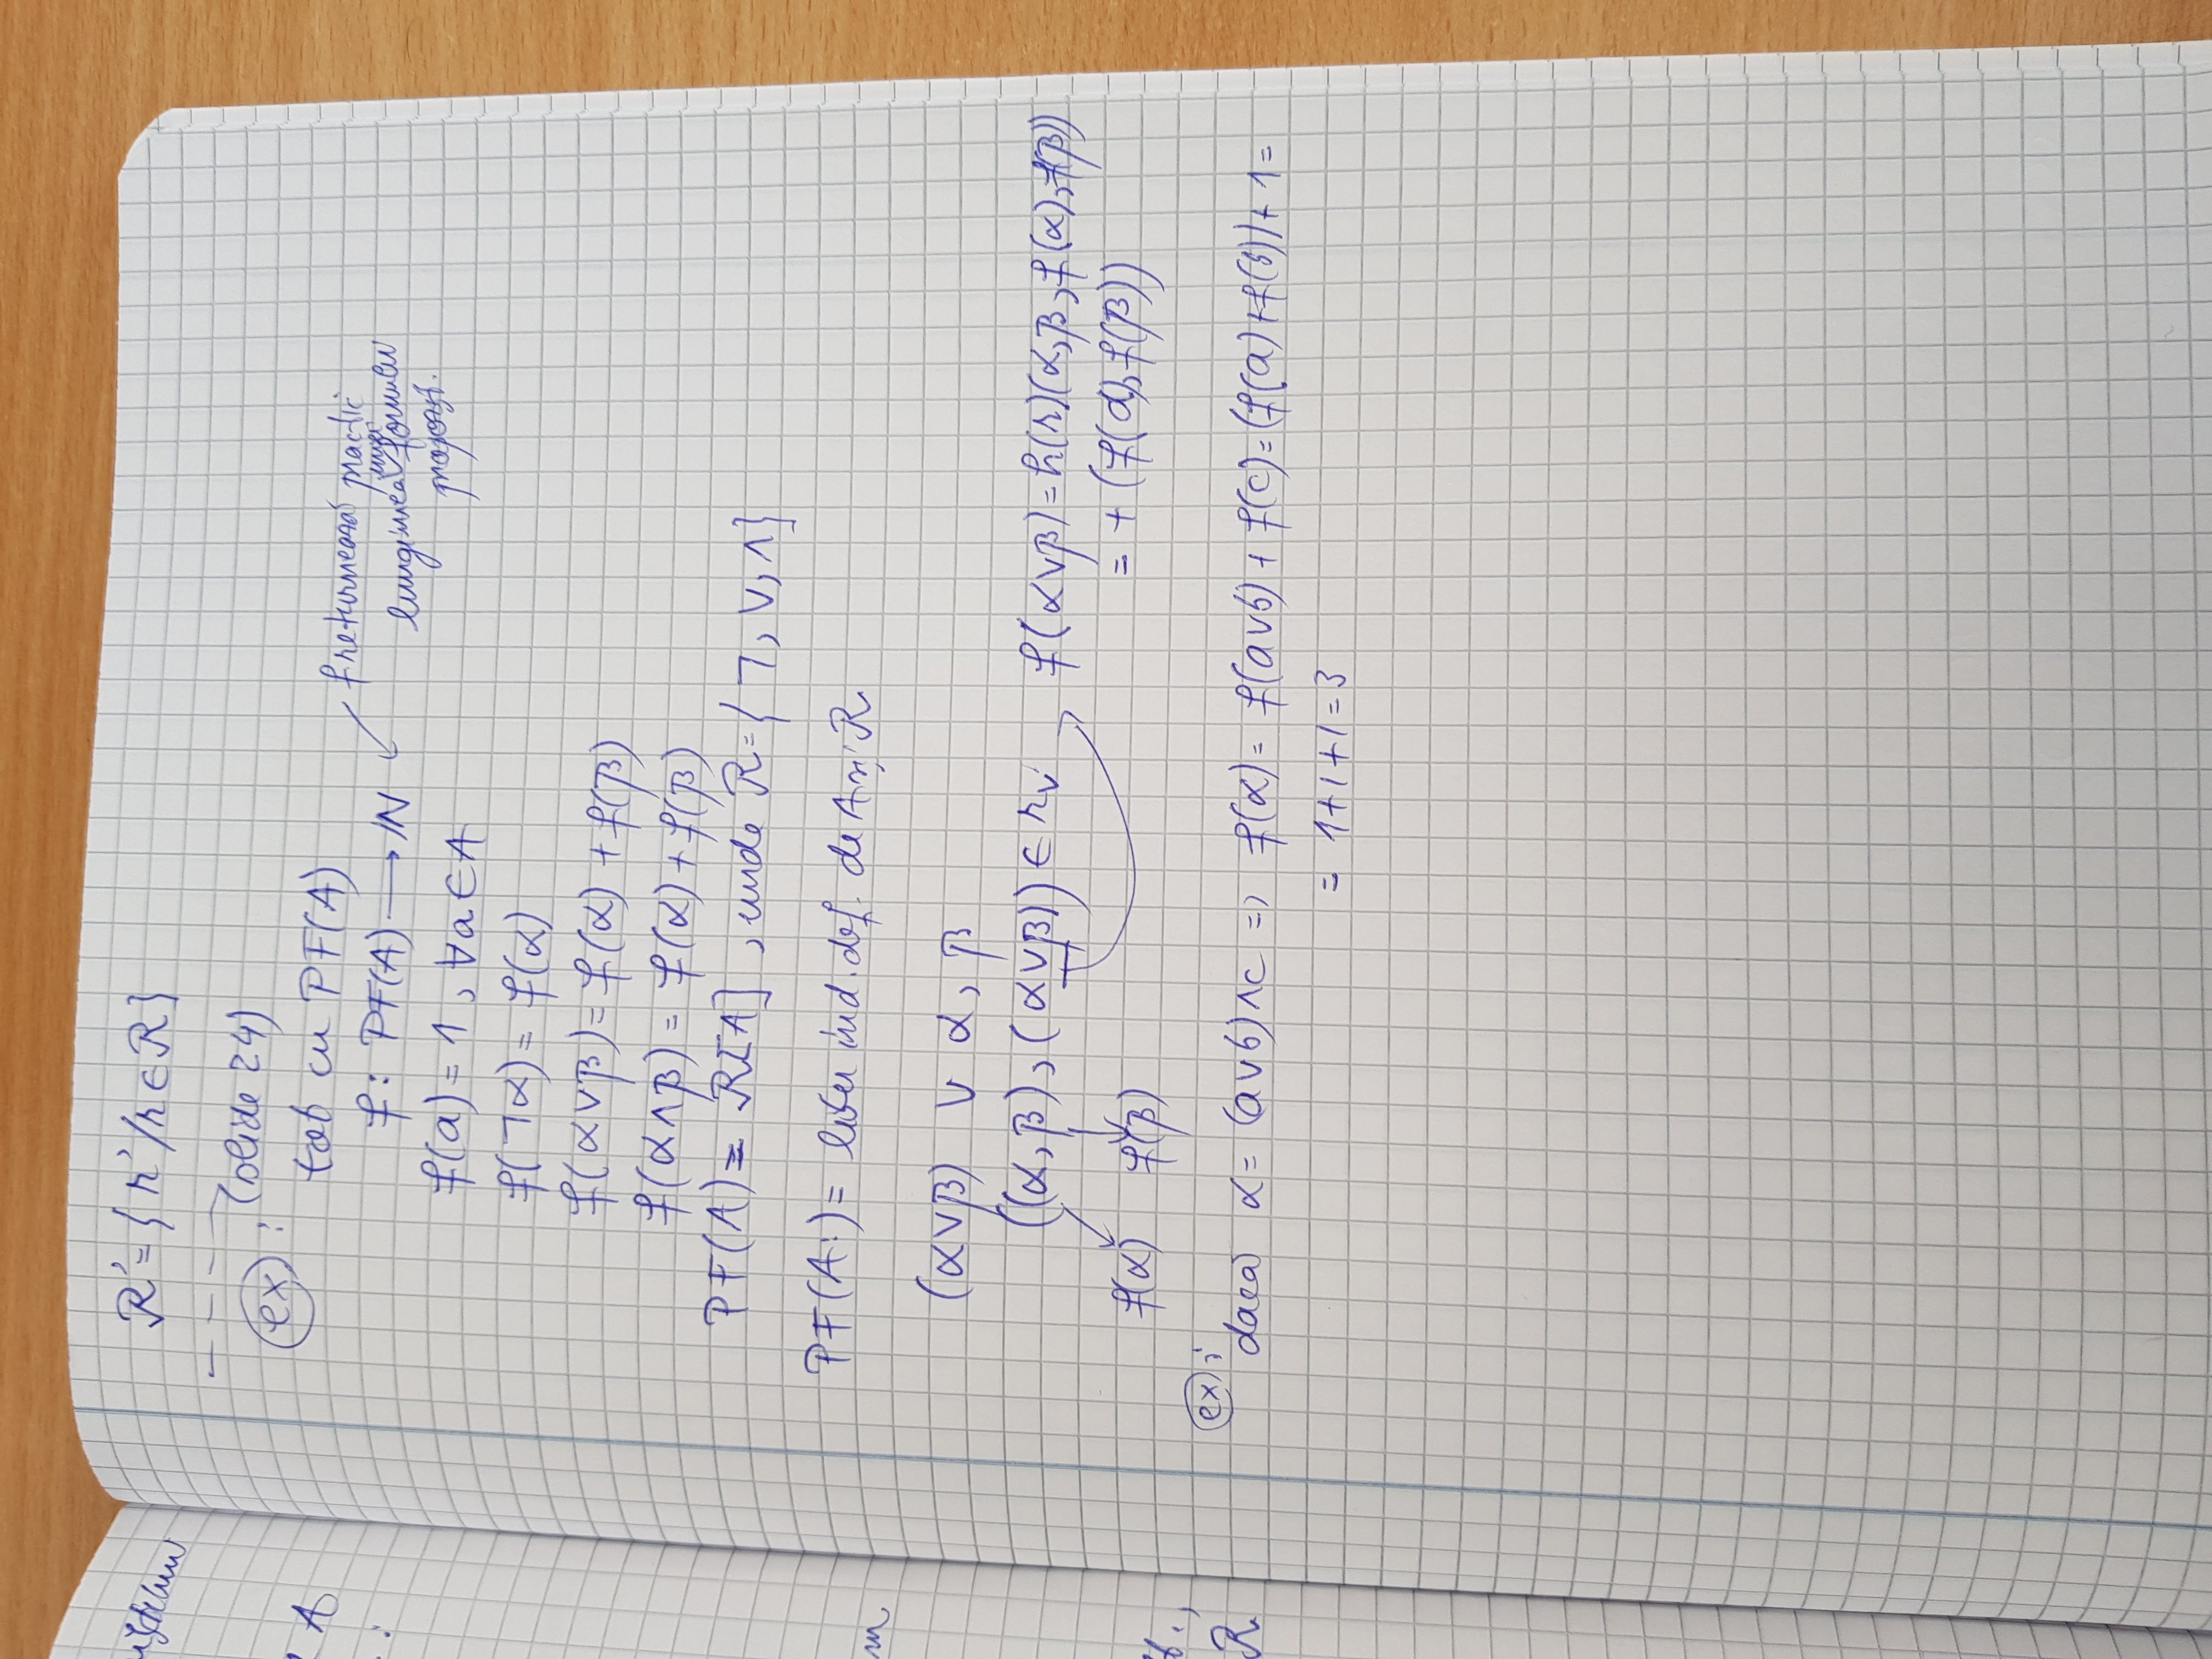 R' = { r' / r ∈ R }
ex : (slide 24)
tot cu PF(A)
f : PF(A) → ℕ
f returnează practic
lungimea unei formule
propoz.
f(a) = 1, ∀a ∈ A
f(¬α) = f(α)
f(α∨β) = f(α) + f(β)
f(α∧β) = f(α) + f(β)
PF(A) = R[A] , unde R = { ¬, ∨, ∧ }
PF(A) = liber ind. def. de A și R
(α∨β) ∨ α, β
((α, β), (α∨β)) ∈ r∨
f(α∨β) = h(r)(α, β, f(α), f(β))
= + (f(α), f(β))
f(α) f(β)
ex :
dacă α = (a∨b)∧c => f(α) = f(a∨b) + f(c) = (f(a) + f(b)) + 1 =
= 1+1+1 = 3
A
R